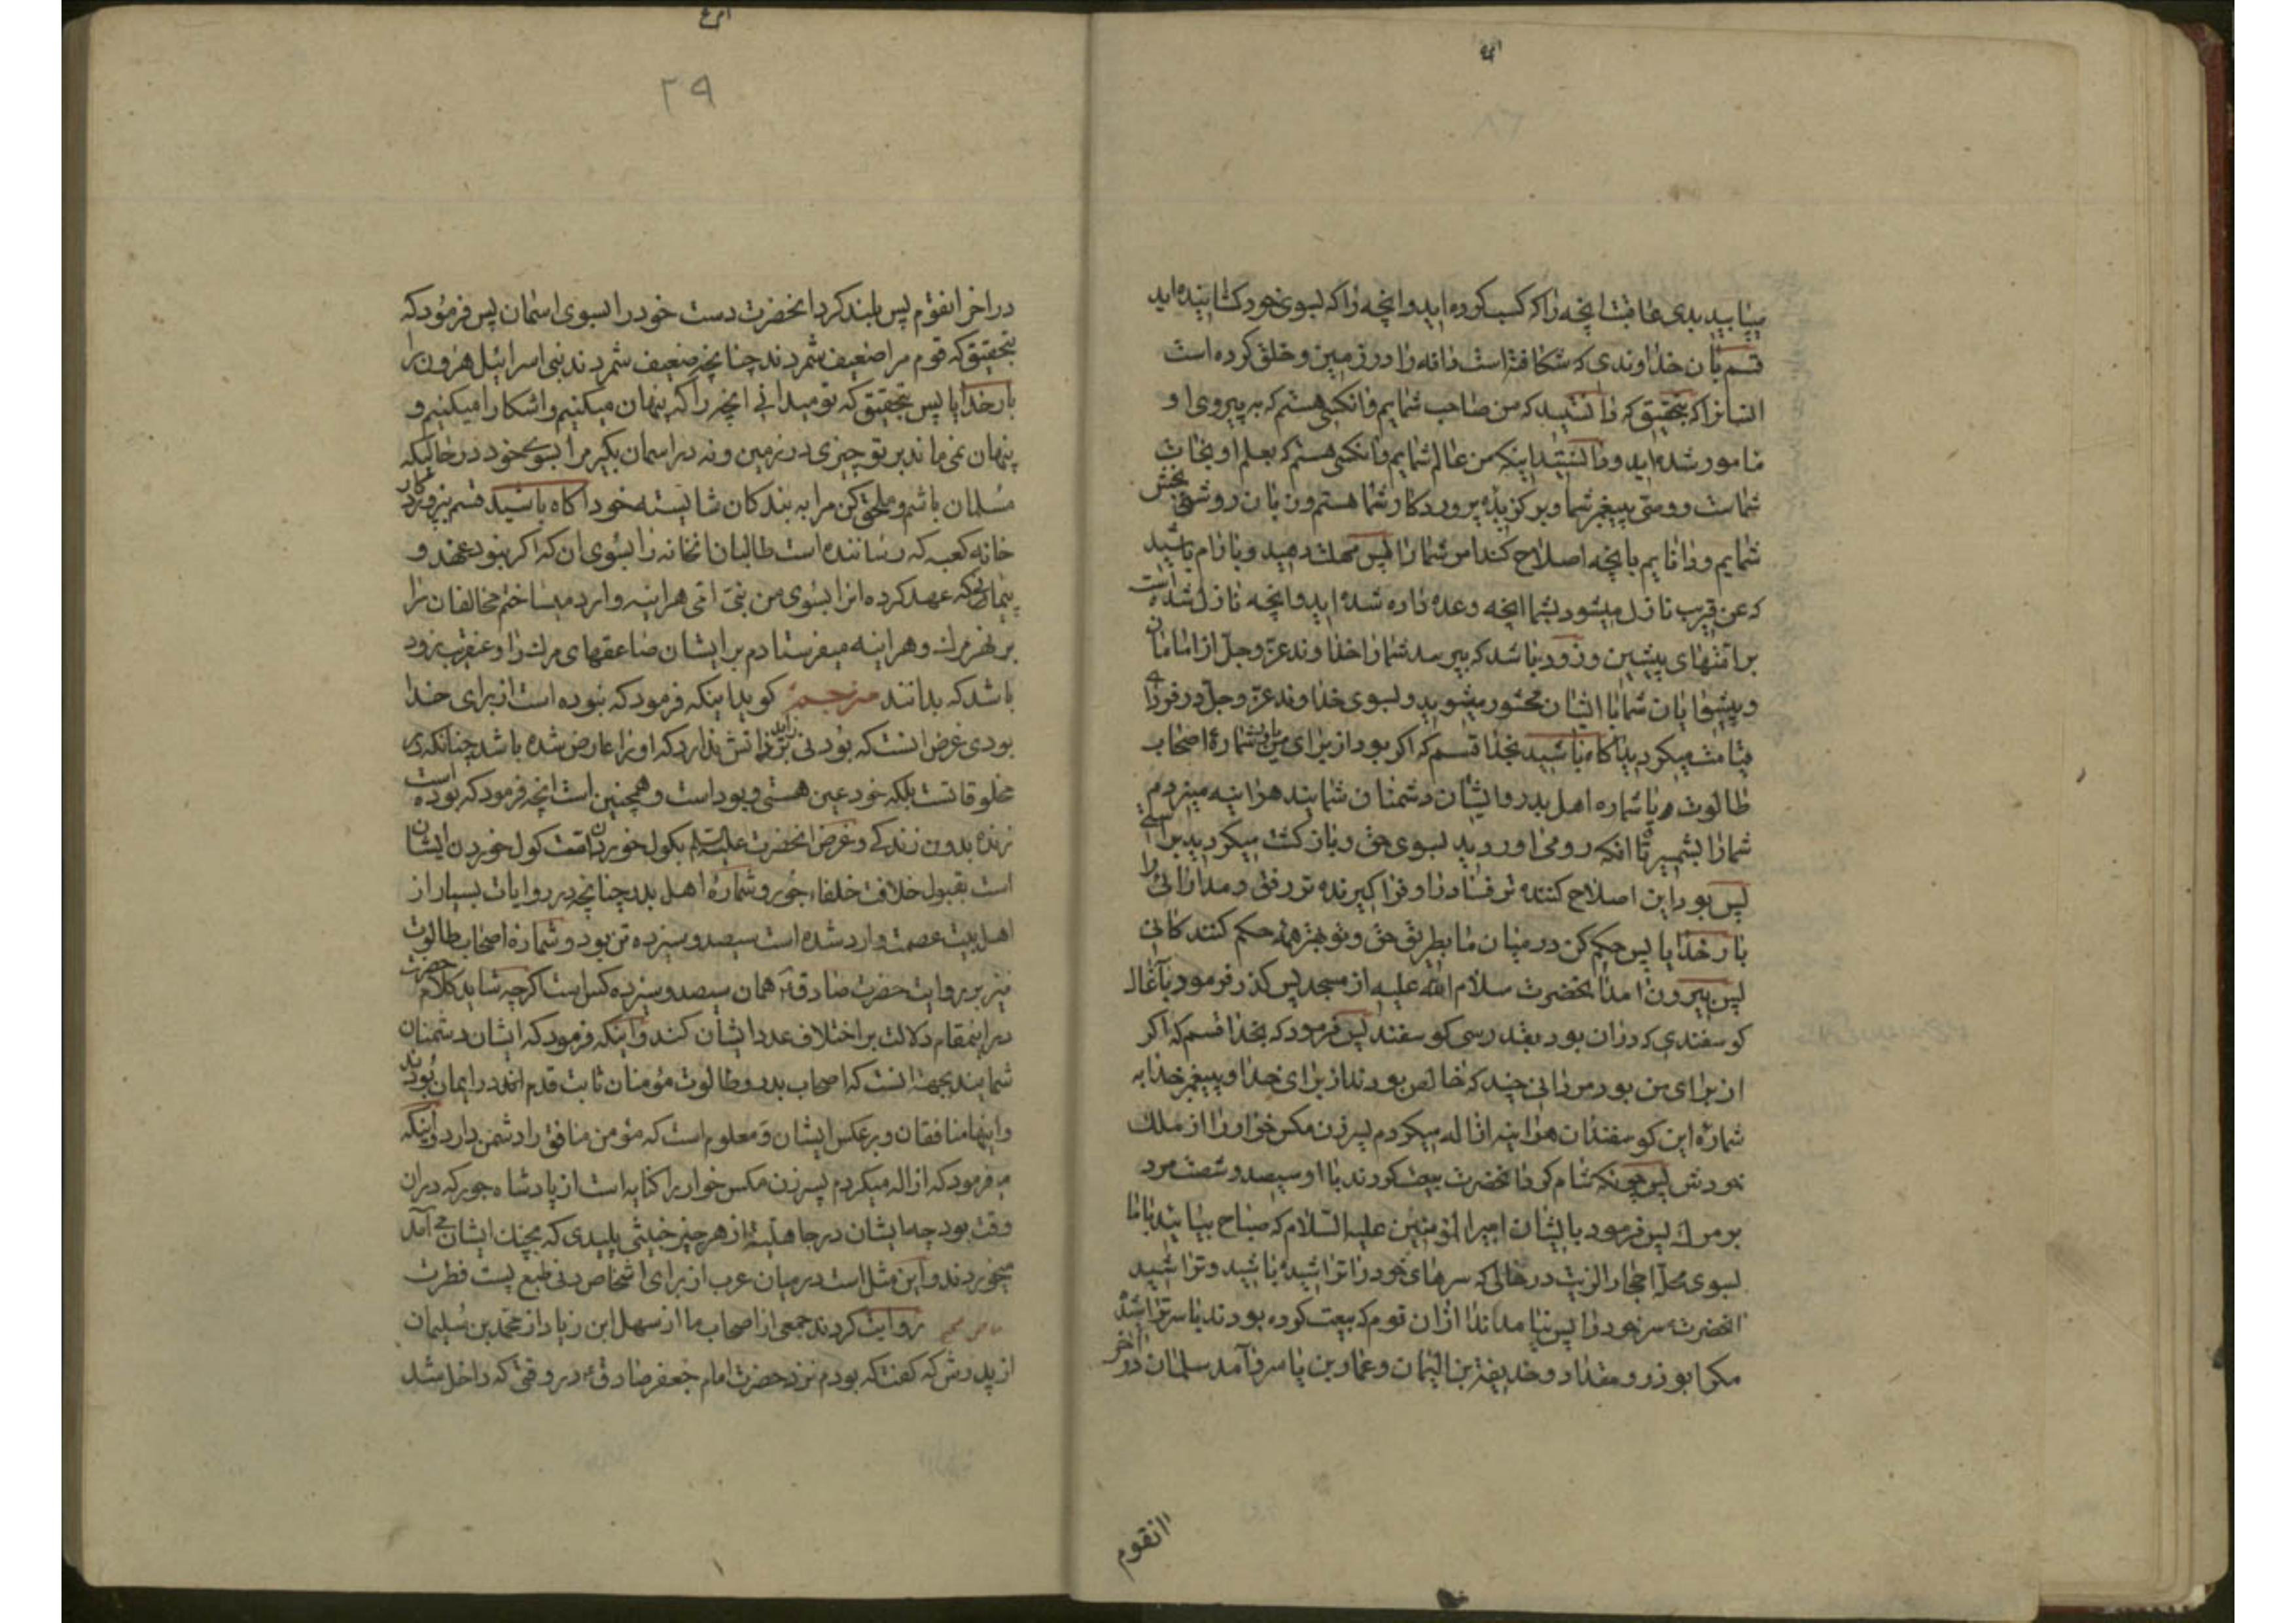 مییابید بدی عاقبت انچه را که کسب کرده اید و انچه را که بسوی خود کشانیده اید
قسم بآن خداوندی که شکافته است دانه را در زمین و خلق کرده است
انسانرا که بتحقیق که دانستید که من صاحب شمایم و انکسی هستم که به پیروی او
مامور شده اید و دانستید اینکه من عالم شمایم و انکسی هستم که بعلم او نجات
شماست و وصی پیغمبر شما و برکزیده پروردکار شما هستم و زبان روشنی بخش
شمایم و دانایم بانچه اصلاح کند امر شما را پس مهلت دهید و بارام باشید
که عن قریب نازل میشود بشما انچه وعده داده شده اید و انچه نازل شده است
بر امتهای پیشین و زود باشد که بپرسد شما را خداوند عزّ و جلّ از امامان
و پیشوایان شما با ایشان محشور میشوید و بسوی خداوند عزّ و جلّ در فردا
قیامت میکردید اکاه باشید بخدا قسم که اکر بود از برای من یاران بشمارۀ اصحاب
طالوت و یا شماره اهل بدر و ایشان دشمنان شمایند هراینه میزدم
شما را بشمیر تا انکه رو می اوردید بسوی حق و بازکشت میکردید براستی
پس بود این اصلاح کننده تر فساد را و فراکیرنده تر رفق و مدارائی را
بارخدایا پس حکم کن در میان ما بطریق حق و تو بهتر همه حکم کنندکانی
پس بیرون امد انحضرت سلام الله علیه از مسجد پس کذر فرمود بآغال
کوسفندی که در ان بود بقدر سی کوسفند پس فرمود که بخدا قسم که اکر
از برای من بود مردانی چند که خالص بودند از برای خدا و پیغمبر خدا به
شمارۀ این کوسفندان هراینه ازاله میکردم پسر زن مکس خوار را از ملک
خودش پس چونکه شام کرد انحضرت بیعت کردند با او سیصد و شصت مرد
بر مرک پس فرمود بایشان امیرالمؤمنین علیه السّلام که صباح بیایید با ما
بسوی محلّ احجار الزیت در حالی که سرهای خود را تراشیده باشید و تراشید
انحضرت سر خود را پس نیامدند از ان قوم که بیعت کرده بودند با سر تراشیده
مکر ابوذر و مقداد و حذیفة بن الیمان و عمار بن یاسر و آمد سلمان در اخر
انقوم
۲۹
در اخر انقوم پس بلند کرد انحضرت دست خود را بسوی اسمان پس فرمود که
بتحقیق که قوم مرا ضعیف شمردند چنانچه ضعیف شمردند بنی اسرائیل هرون را
بارخدایا پس بتحقیق که تو میدانی انچه را که پنهان میکنیم و اشکارا میکنیم و
پنهان نمی ماند بر تو چیزی در زمین و نه در اسمان بکیر مرا بسوی خود در حالیکه
مسلمان باشم و ملحق کن مرا به بندکان شایسته خود اکاه باشید قسم بپروردکار
خانه کعبه که رساننده است طالبان انخانه را بسوی ان که اکر نبود عهد و
پیمانی که عهد کرده انرا بسوی من نبیّ امّی هراینه وارد میساختم مخالفان را
بر نهر مرک و هراینه میفرستادم بر ایشان صاعقهای مرک را و عنقریب زود
باشد که بدانند مترجم کوید اینکه فرمود که نبوده است از برای خدا
بودی غرض انست که بودنی زاید بر ذاتش ندارد که او را عارض شده باشد چنانکه در
مخلوقاتست بلکه خود عین هستی و بود است و همچنین است انچه فرمود که بوده است
زنده بدون زندکی و غرض انحضرت علیه السّلم بکول خوردن امّت کول خوردن ایشان
است بقبول خلافت خلفاء جور و شمارۀ اهل بدر چنانچه در روایات بسیار از
اهل بیت عصمت وارد شده است سیصد و سیزده تن بود و شمارۀ اصحاب طالوت
نیز بروایت حضرت صادق ع همان سیصد و سیزده کس است اکرچه شاید کلام حضرت
در اینمقام دلالت بر اختلاف عدد ایشان کند و اینکه فرمود که ایشان دشمنان
شمایند بجهة انست که اصحاب بدر و طالوت مؤمنان ثابت قدم در ایمان بودند
و اینها منافقان و برعکس ایشان و معلوم است که مؤمن منافق را دشمن دارد و اینکه
فرمود که ازاله میکردم پسر زن مکس خوار را کنایه است از پادشاه جور که در ان
وقت بود چه ایشان در جاهلیّة از هر چیز خبیثی پلیدی که بچنک ایشان می آمد
میخوردند و این مثل است در میان عرب از برای اشخاص دنی طبع پست فطرت
روایت کردند جمعی از اصحاب ما از سهل ابن زیاد از محمّد بن سُلیمان
از پدرش که کفت که بودم نزد حضرت امام جعفر صادق ع در وقتی که داخل شد